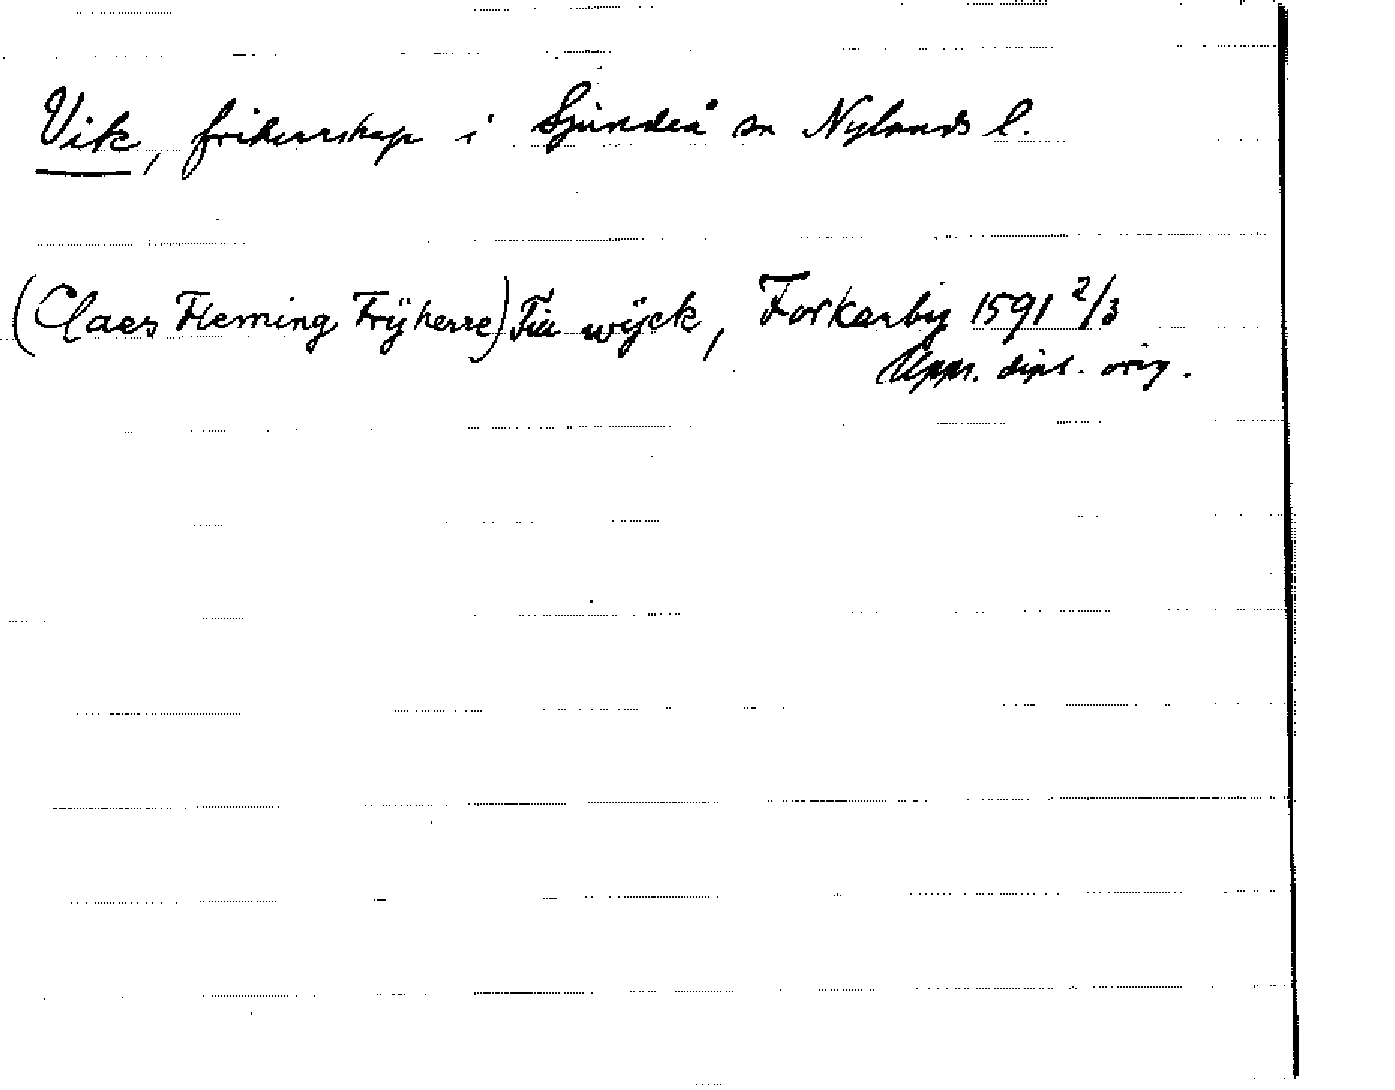 Vik, friherrskap i Sjundeå sn Nylands l.
(Claes Fleming Frÿherre) Till wÿck, Forkarby 1591 2/3
Upps. dipl. orig.